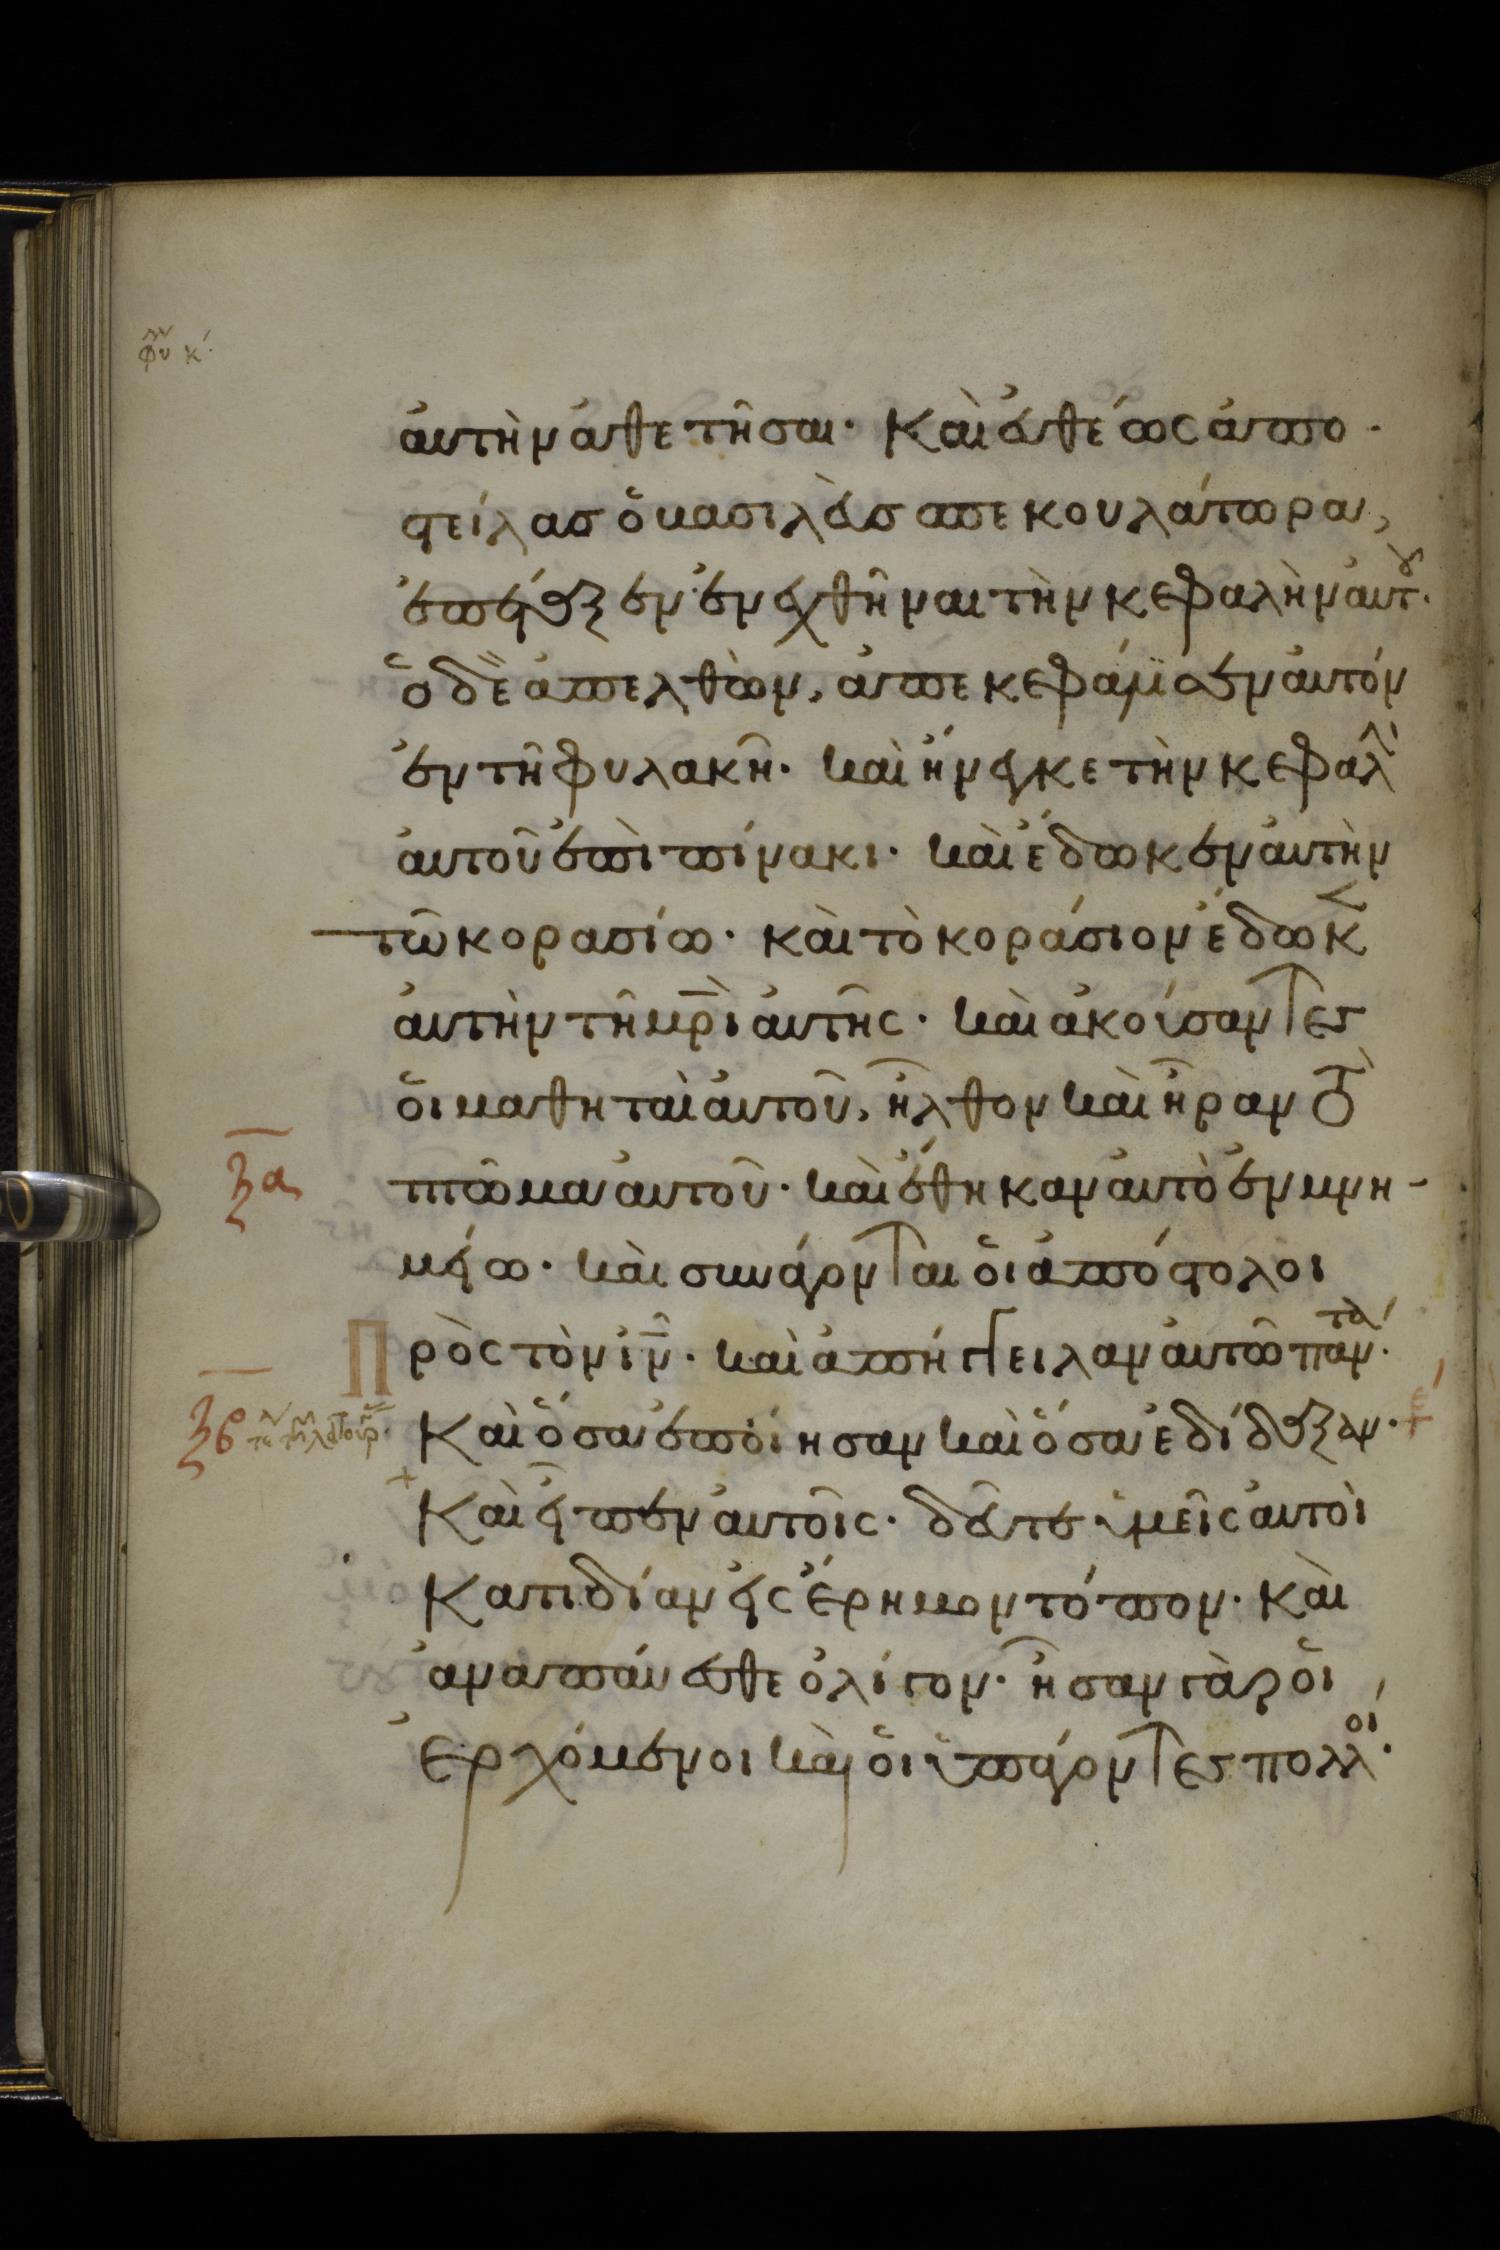 ἀυτὴν ἀθετῆσαι· Καὶ ἐυθέως ἀπο-
στείλασ ὁ βασιλεὺσ σπεκουλάτωρα,
ἐπέταξεν ἐνεχθῆναι τὴν κεφαλὴν ἀυτοῦ·
ὁ δὲ ἀπελθὼν, ἀπεκεφάλισεν ἀυτόν
ἐν τῆ φυλακῆ· καὶ ἤνεγκε τὴν κεφαλὴ
ἀυτοῦ ἐπὶ πίνακι· καὶ ἔδωκεν ἀυτὴν
τῶ κορασίω· καὶ τὸ κοράσιον ἔδωκ
ἀυτὴν τῆ μρ̅ι ἀυτῆς· καὶ ἀκούσαντες
ὁι μαθηταὶ ἀυτοῦ, ἦλθον καὶ ἦραν τὸ
πτῶμα ἀυτοῦ· καὶ ἔθηκαν ἀυτὸ ἐν μνη-
ξα
μείω· καὶ συνάγονται ὁι ἀπόστολοι
Πρὸς τὸν ἰν̅· καὶ ἀπήγγειλαν ἀυτῶ πάντα·
ξβ
Καὶ ὅσα ἐποίησαν καὶ ὅσα ἐδίδαξαν·
Καὶ εἶπεν ἀυτοῖς· δεῦτε ὑμεῖς ἀυτοὶ
Κατιδίαν εἰς ἔρημον τόπον· καὶ
ἀναπαύεσθε ὀλίγον· ἦσαν γὰρ ὁι
ἐρχόμενοι καὶ ὁι ὑπάγοντες πολλοί·